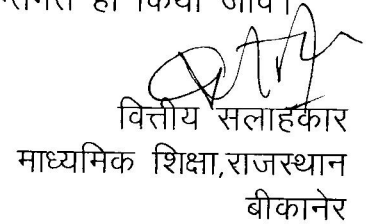 ही किया जावे।
वित्तीय सलाहकार
माध्यमिक शिक्षा,राजस्थान
बीकानेर